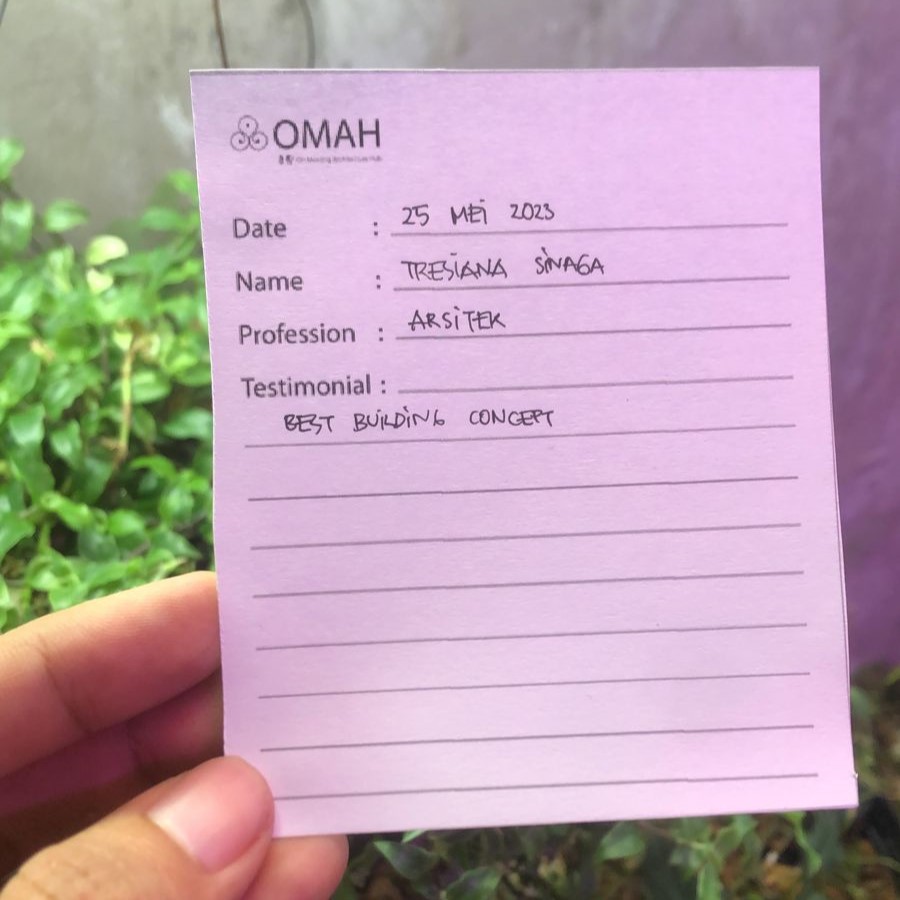 OMAH
Date : 25 MEi 2023
Name : TRESiANA SiNAGA
Profession : ARSiTEK
Testimonial :
BEST BUiLDiNG CONCEPT